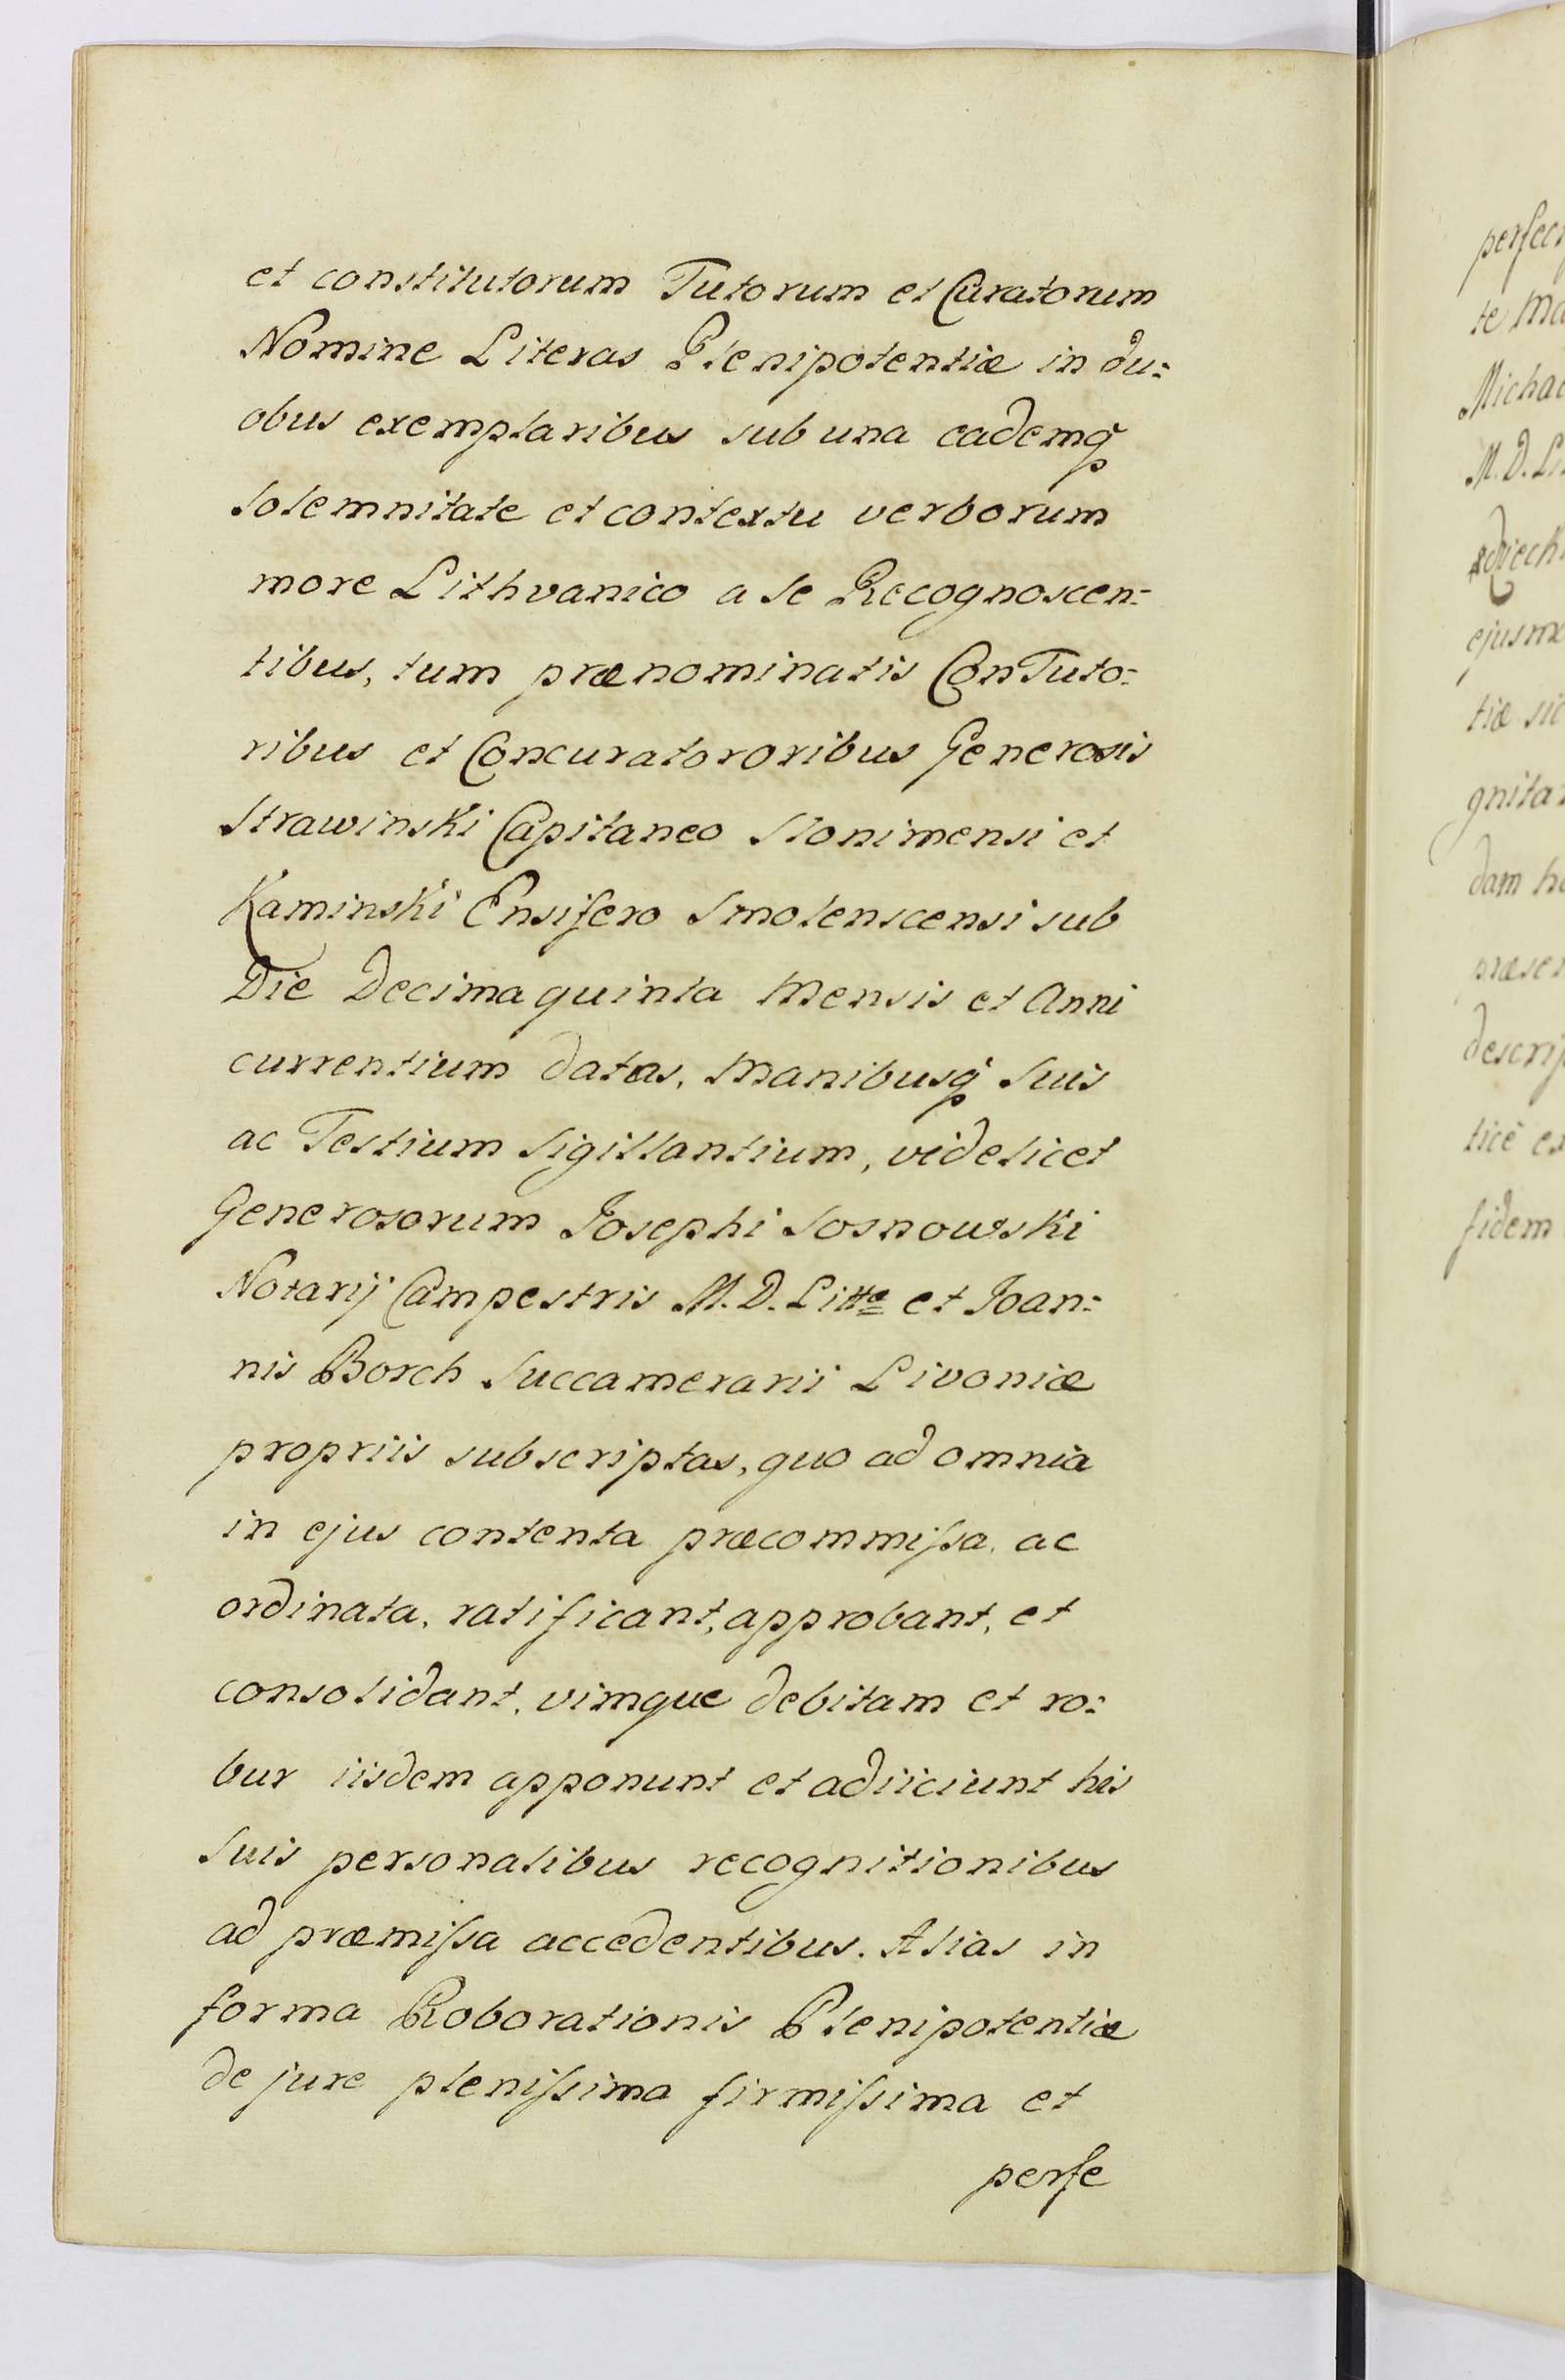 et constitutorum Tutorum et Curatorum
Nomine Literas Plenipotentiæ in du:
obus exemplaribus sub una eademq̢
Solemnitate et contextu verborum
more Lithvanico a se Recognoscen:
tibus, tum prænominatis ConTuto:
ribus et Concuratororibus Generosis
Strawinski Capitaneo Slonimensi et
Kaminski Ensifero Smolenscensi sub
Die Decima quinta Mensis et Anni
currentium datas, Manibusq̢ Suis
ac Testium Sigillantium, videlicet
Generosorum Josephi Sosnowski
Notarij Campestris M. D. Littæ et Joan:
nis Borch Succamerarii Livoniæ
propriis subscriptas, quo ad omnia
in ejus contenta præcommiſsa, ac
ordinata, ratificant, approbant, et
consolidant, vimque debitam et ro:
bur iisdem apponunt et adiiciunt his
Suis personalibus recognitionibus
ad præmiſsa accedentibus. Alias in
forma Roborationis Plenipotentiæ
de jure pleniſsima firmiſsima et
perfe
te
M. D.
tiæ
dam
fidem